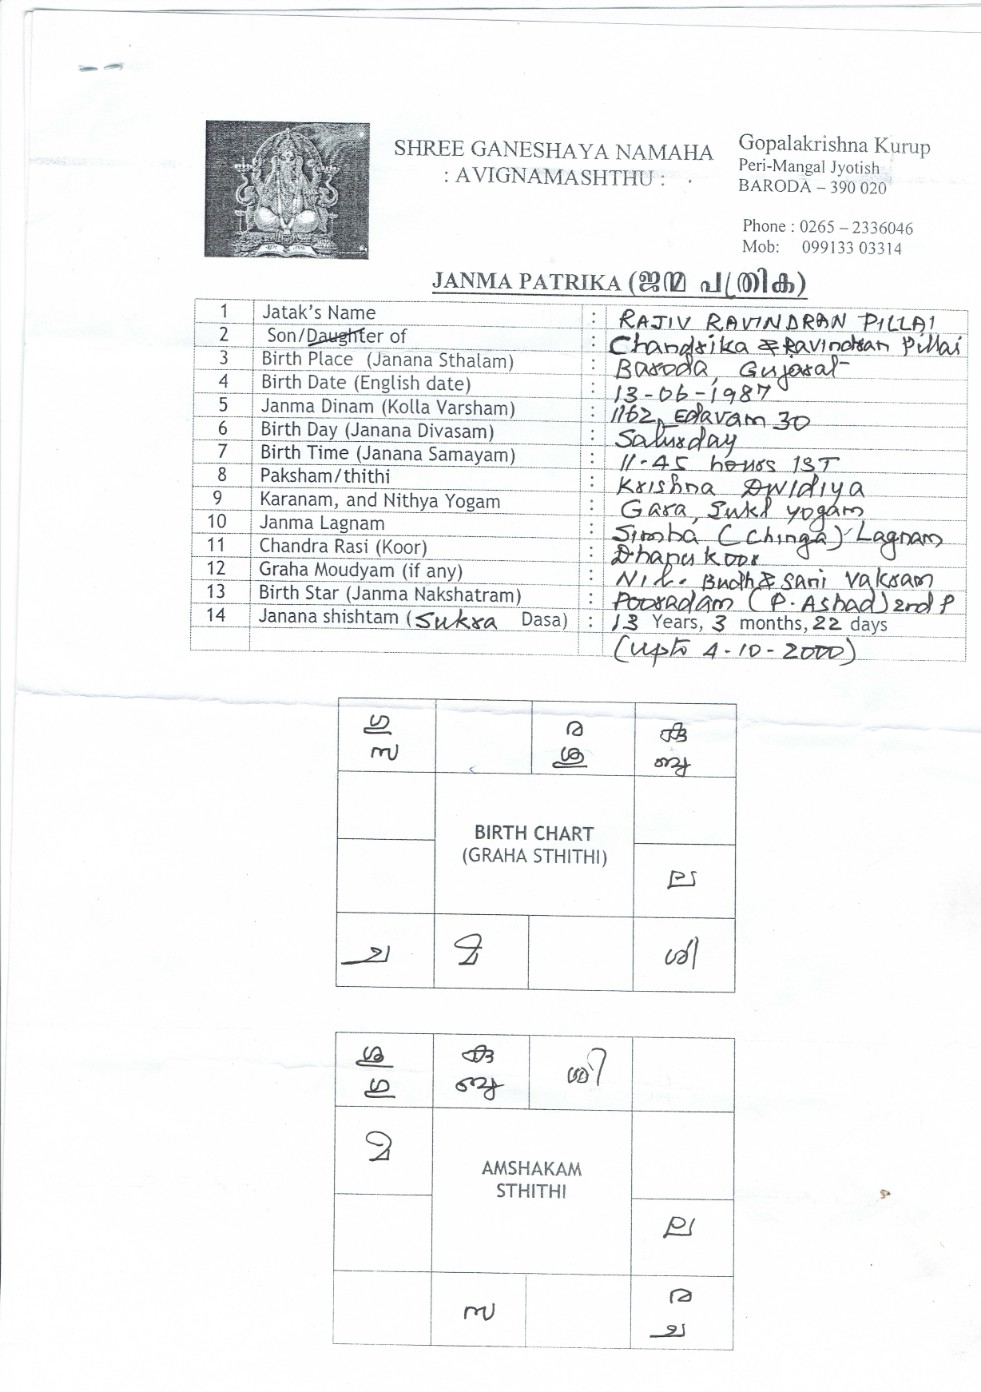 SHREE GANESHAYA NAMAHA
: AVIGNAMASHTHU :
Gopalakrishna Kurup
Peri-Mangal Jyotish
BARODA – 390 020
Phone : 0265 – 2336046
Mob: 099133 03314
JANMA PATRIKA (ജന്മ പത്രിക)
1 Jatak's Name : RAJIV RAVINDRAN PILLAI
2 Son/Daughter of : Chandrika & Ravindran Pillai
3 Birth Place (Janana Sthalam) : Baroda, Gujarat
4 Birth Date (English date) : 13-06-1987
5 Janma Dinam (Kolla Varsham) : 1162, Edavam 30
6 Birth Day (Janana Divasam) : Saturday
7 Birth Time (Janana Samayam) : 11-45 hours IST
8 Paksham/thithi : Krishna Dwidiya
9 Karanam, and Nithya Yogam : Gara, Sukl yogam
10 Janma Lagnam : Simha (Chinga) Lagnam
11 Chandra Rasi (Koor) : Dhanu Koor
12 Graha Moudyam (if any) : Nil. Budh & Sani Vakram
13 Birth Star (Janma Nakshatram) : Pooradam (P. Ashad) 2nd P
14 Janana shishtam (Sukra Dasa) : 13 Years, 3 months, 22 days
(upto 4-10-2000)
ഗു ര കു
സ ശു ബു
BIRTH CHART
(GRAHA STHITHI)
ല
ച മ ശി
ശു കു ശി
ഗു ബു
മ
AMSHAKAM
STHITHI
ല
സ ര
ച